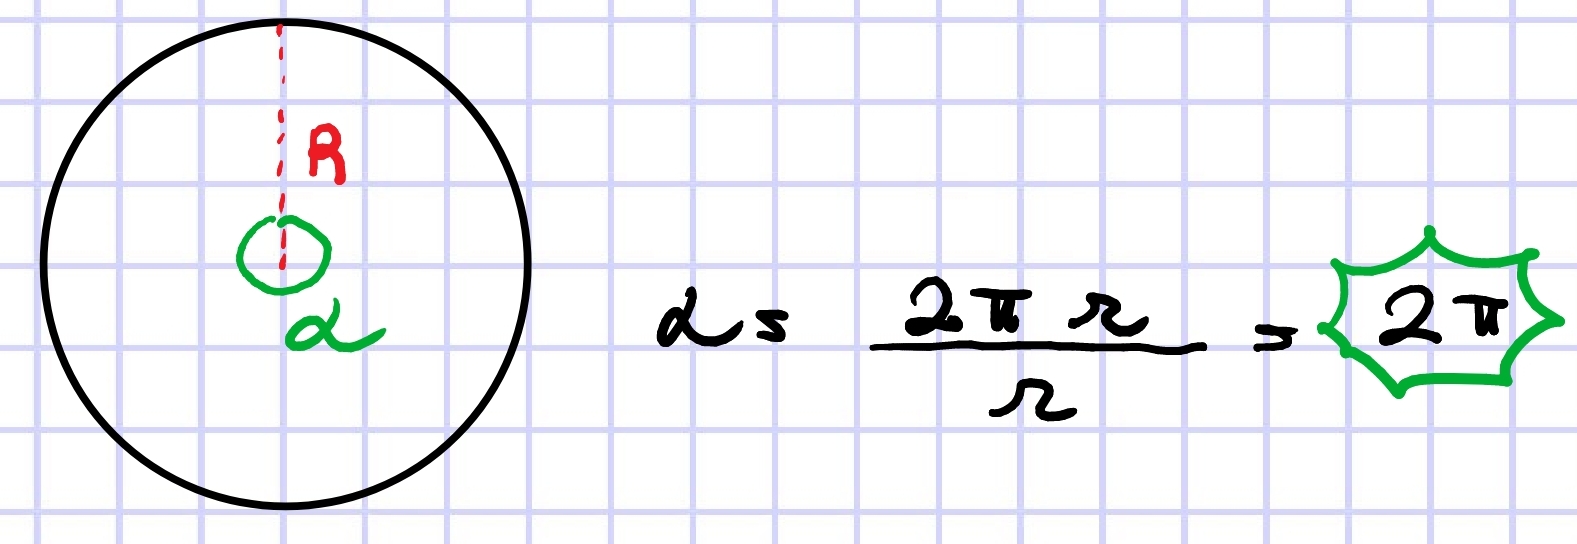 R
α
α = 2πr / r = 2π